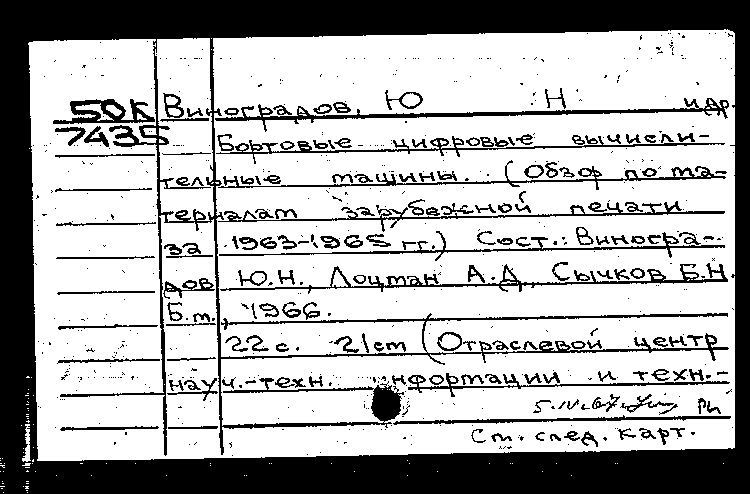 50К Виноградов, Ю Н и др.
7435 Бортовые цифровые вычисли-
тельные машины. (Обзор по ма-
териалам зарубежной печати
за 1963-1965 гг.) Сост.: Виногра-
дов Ю.Н., Лоцман А.Д., Сычков Б.Н.
Б.м., 1966.
22 с. 21см (Отраслевой центр
науч.-техн. информации и техн.-
5.IV.67.
См. след. карт.